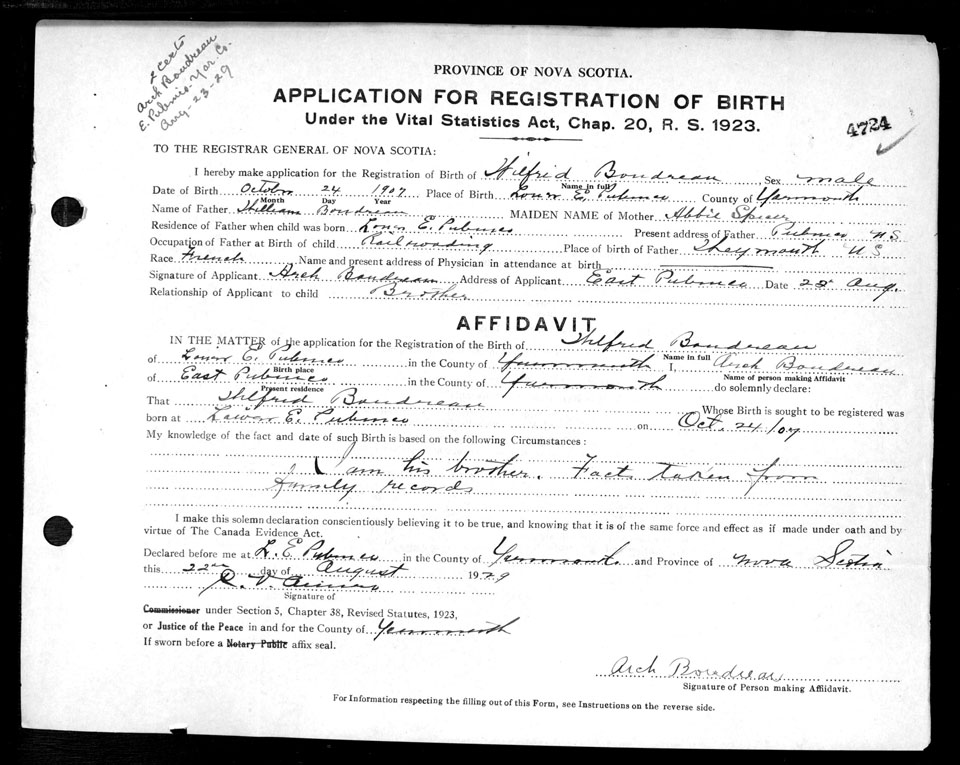 2 certs
Arch Boudreau
E. Pubnico - Yar. Co.
Aug - 23 - 29
PROVINCE OF NOVA SCOTIA.
APPLICATION FOR REGISTRATION OF BIRTH
Under the Vital Statistics Act, Chap. 20, R. S. 1923.
4724
TO THE REGISTRAR GENERAL OF NOVA SCOTIA:
I hereby make application for the Registration of Birth of Wilfrid Boudreau Sex male
Name in full
Date of Birth October 24 1907 Place of Birth Lower E. Pubnico County of Yarmouth
Month Day Year
Name of Father William Boudreau MAIDEN NAME of Mother Abbie
Residence of Father when child was born Lower E. Pubnico Present address of Father Pubnico N S
Occupation of Father at Birth of child Railroading Place of birth of Father
Race French Name and present address of Physician in attendance at birth
Signature of Applicant Arch Boudreau Address of Applicant East Pubnico Date Aug.
Relationship of Applicant to child Brother
AFFIDAVIT
IN THE MATTER of the application for the Registration of the Birth of Wilfred Boudreau
Name in full
of Lower E. Pubnico in the County of Yarmouth I, Arch Boudreau
Birth place Name of person making Affidavit
of East Pubnico in the County of Yarmouth do solemnly declare:
Present residence
That Wilfred Boudreau Whose Birth is sought to be registered was
born at Lower E. Pubnico on Oct. 24/07
My knowledge of the fact and date of such Birth is based on the following Circumstances:
I am his brother. Facts taken from
family records
I make this solemn declaration conscientiously believing it to be true, and knowing that it is of the same force and effect as if made under oath and by
virtue of The Canada Evidence Act.
Declared before me at L. E. Pubnico in the County of Yarmouth and Province of Nova Scotia
this 22nd day of August 1929
Signature of
Commissioner under Section 5, Chapter 38, Revised Statutes, 1923,
or Justice of the Peace in and for the County of Yarmouth
If sworn before a Notary Public affix seal.
Arch Boudreau
Signature of Person making Affidavit.
For Information respecting the filling out of this Form, see Instructions on the reverse side.